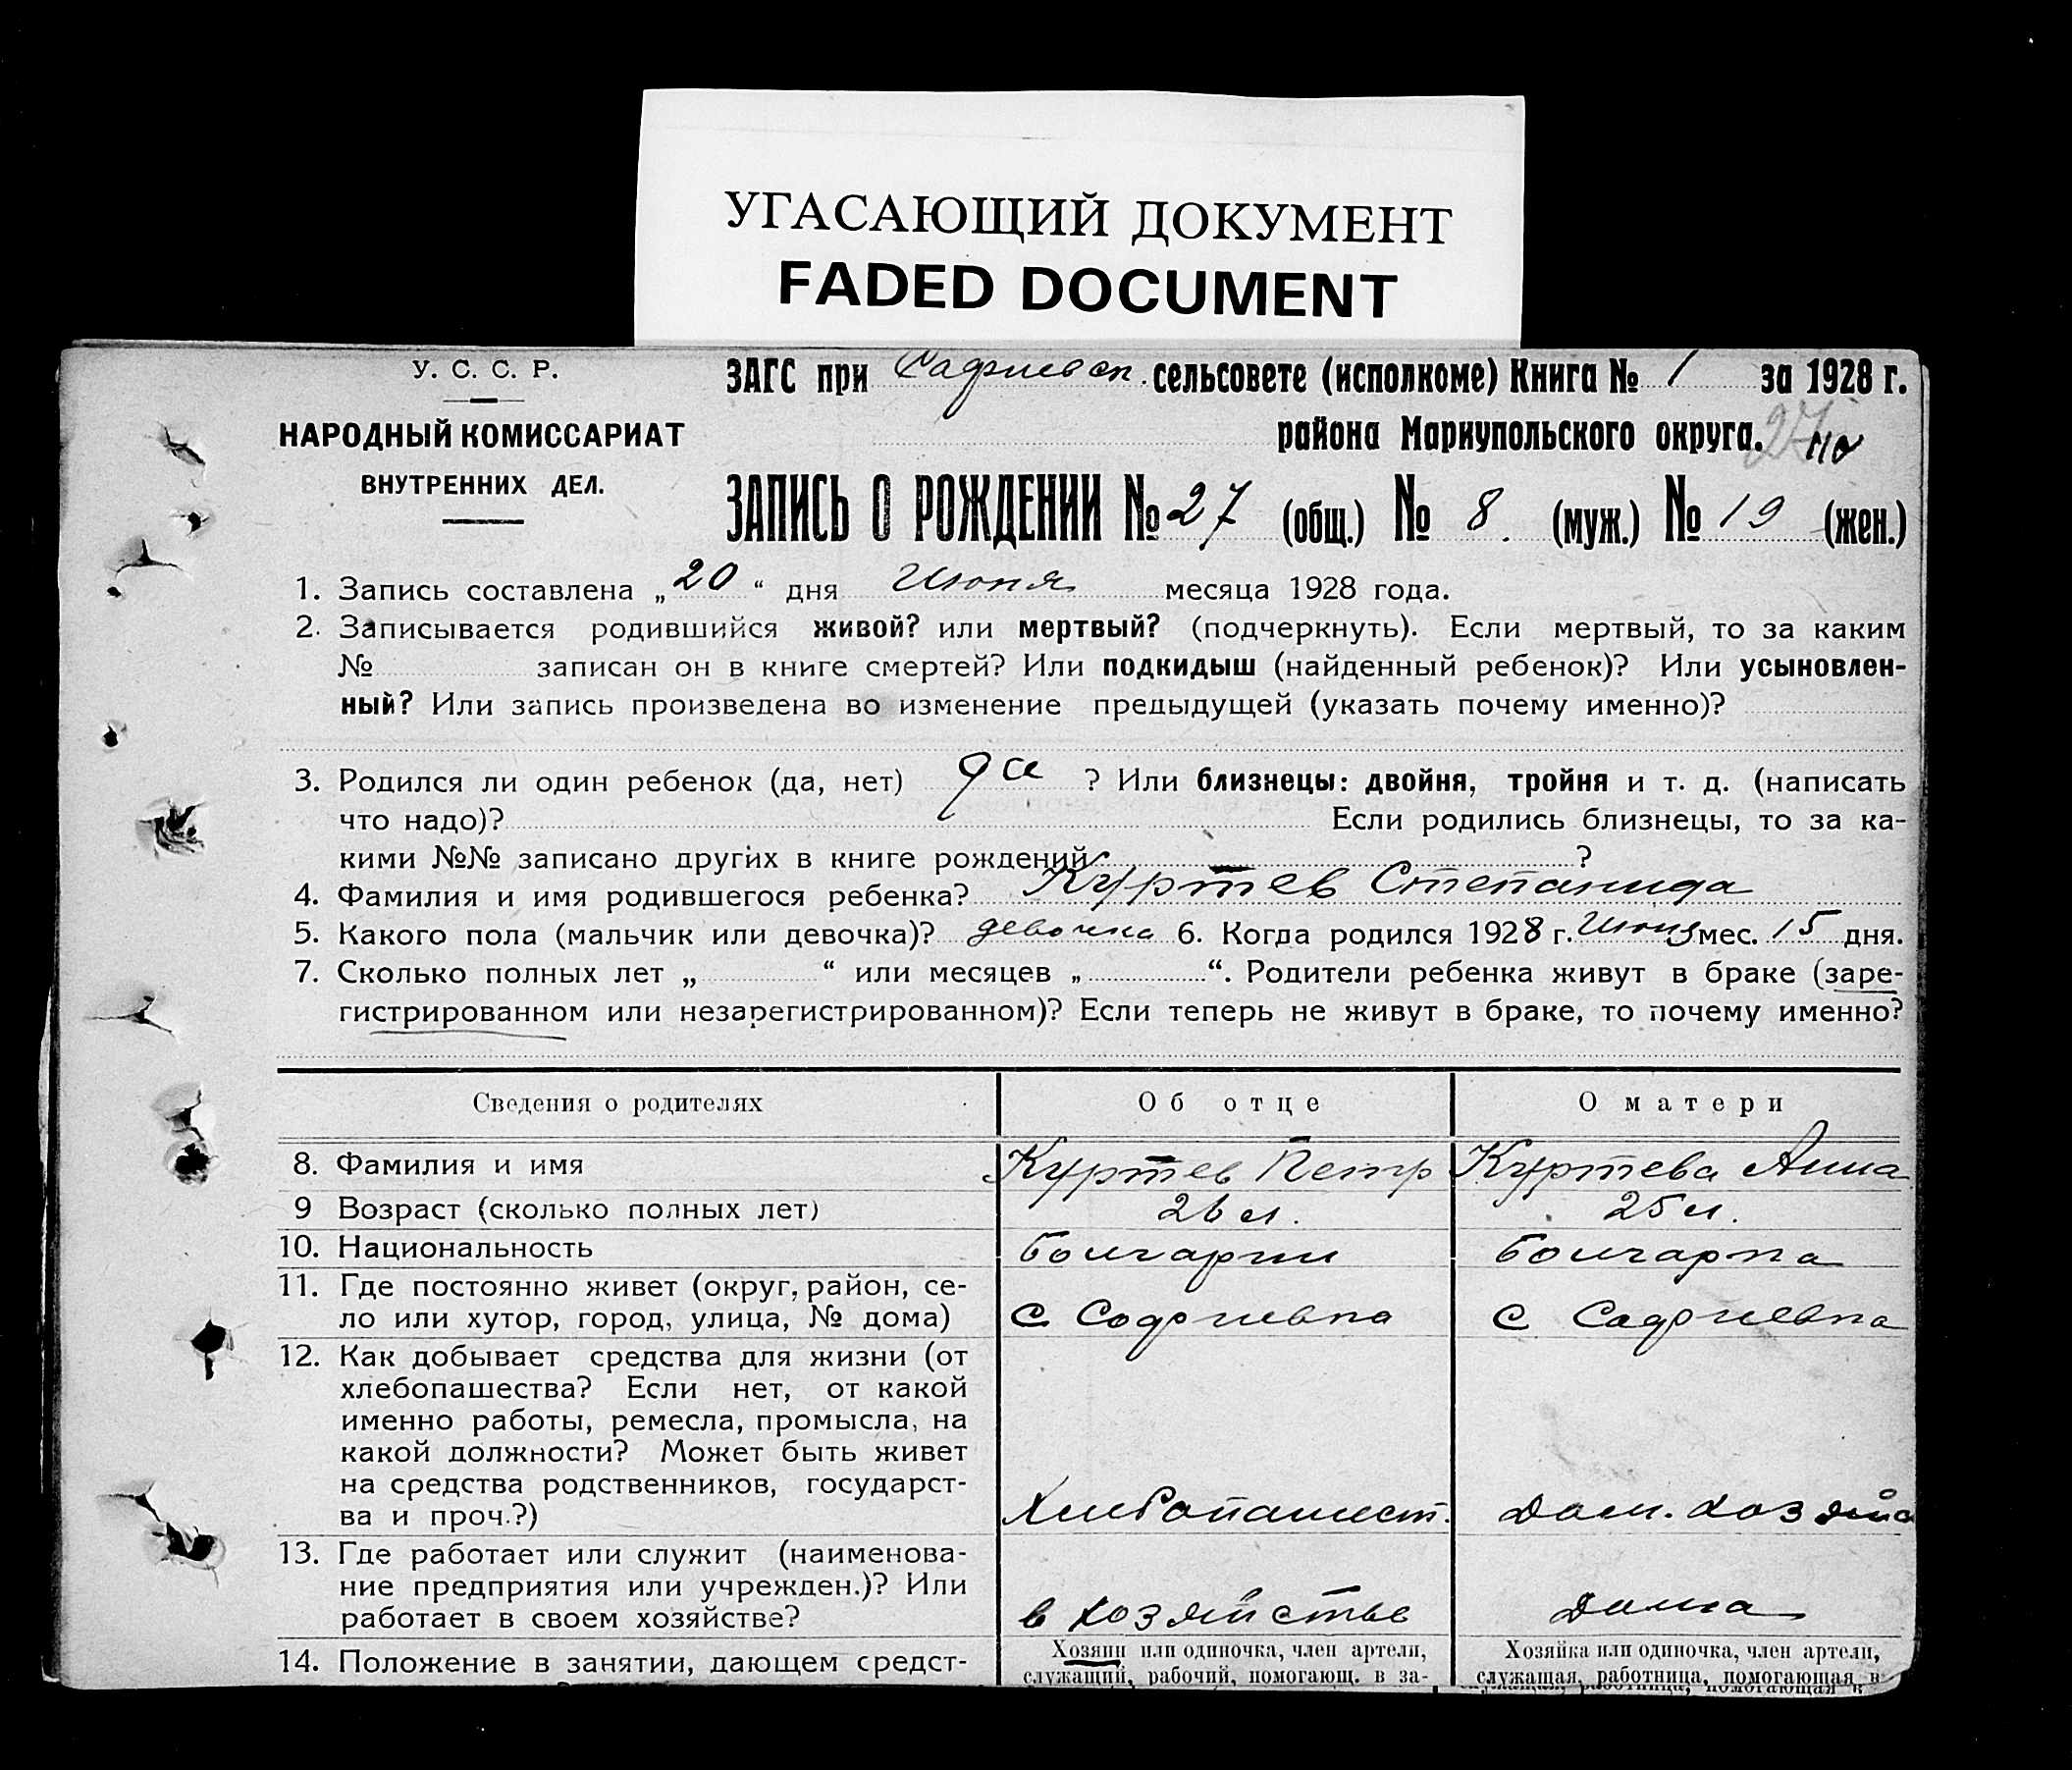 УГАСАЮЩИЙ ДОКУМЕНТ
FADED DOCUMENT
У. С. С. Р.
НАРОДНЫЙ КОМИССАРИАТ
ВНУТРЕННИХ ДЕЛ.
ЗАГС при Сафиевск. сельсовете (исполкоме) Книга № 1 за 1928 г.
района Мариупольского округа. 27
ЗАПИСЬ О РОЖДЕНИИ № 27 (общ.) № 8. (муж.) № 19 (жен.)
1. Запись составлена „20“ дня Июня месяца 1928 года.
2. Записывается родившийся живой? или мертвый? (подчеркнуть). Если мертвый, то за каким
№ записан он в книге смертей? Или подкидыш (найденный ребенок)? Или усыновлен-
ный? Или запись произведена во изменение предыдущей (указать почему именно)?
3. Родился ли один ребенок (да, нет) да ? Или близнецы: двойня, тройня и т. д. (написать
что надо)? Если родились близнецы, то за ка-
кими №№ записано других в книге рождений ?
4. Фамилия и имя родившегося ребенка? Куртев Степанида
5. Какого пола (мальчик или девочка)? девочка 6. Когда родился 1928 г. Июня мес. 15 дня.
7. Сколько полных лет „ “ или месяцев „ “. Родители ребенка живут в браке (заре-
гистрированном или незарегистрированном)? Если теперь не живут в браке, то почему именно?
Сведения о родителях Об отце О матери
8. Фамилия и имя Куртев Петр Куртева Анна
9 Возраст (сколько полных лет) 26 л. 25 л.
10. Национальность болгарин болгарка
11. Где постоянно живет (округ, район, се-
ло или хутор, город, улица, № дома) с Софиевка с Сафиевка
12. Как добывает средства для жизни (от
хлебопашества? Если нет, от какой
именно работы, ремесла, промысла, на
какой должности? Может быть живет
на средства родственников, государст-
ва и проч.?) Хлебопашест. Дом. хозяйка
13. Где работает или служит (наименова-
ние предприятия или учрежден.)? Или
работает в своем хозяйстве? в хозяйстве Дома
14. Положение в занятии, дающем средст-
Хозяин или одиночка, член артели,
служащий, рабочий, помогающ. в за-
Хозяйка или одиночка, член артели,
служащая, работница, помогающая в